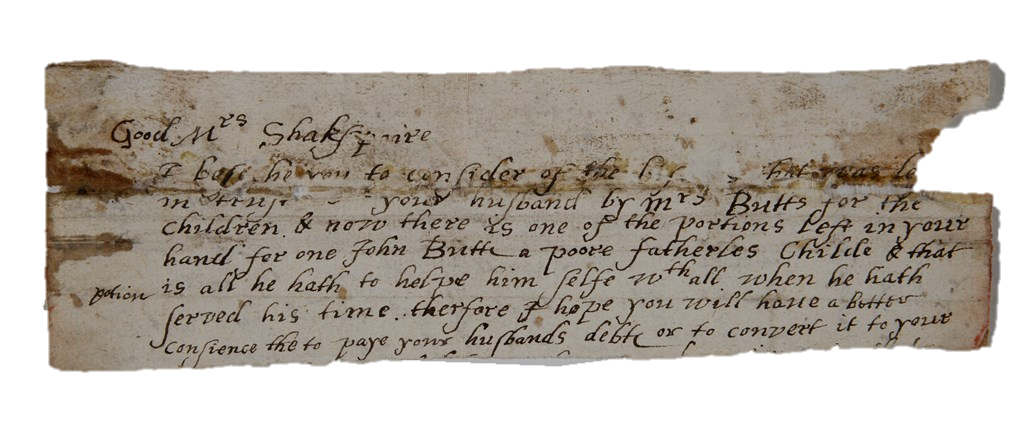 Good Mrs Shakspaire
I bese he you to consider of the that was le
in trust your husband by Mrs Butts for the
Children & now there is one of the portions left in your
hand for one John Butts a poore fatherles Childe & that
is all he hath to helpe him selfe wth all when he hath
potion served his time. therfore I hope you will have a better
Consience the to paye your husbands debts or to convert it to your